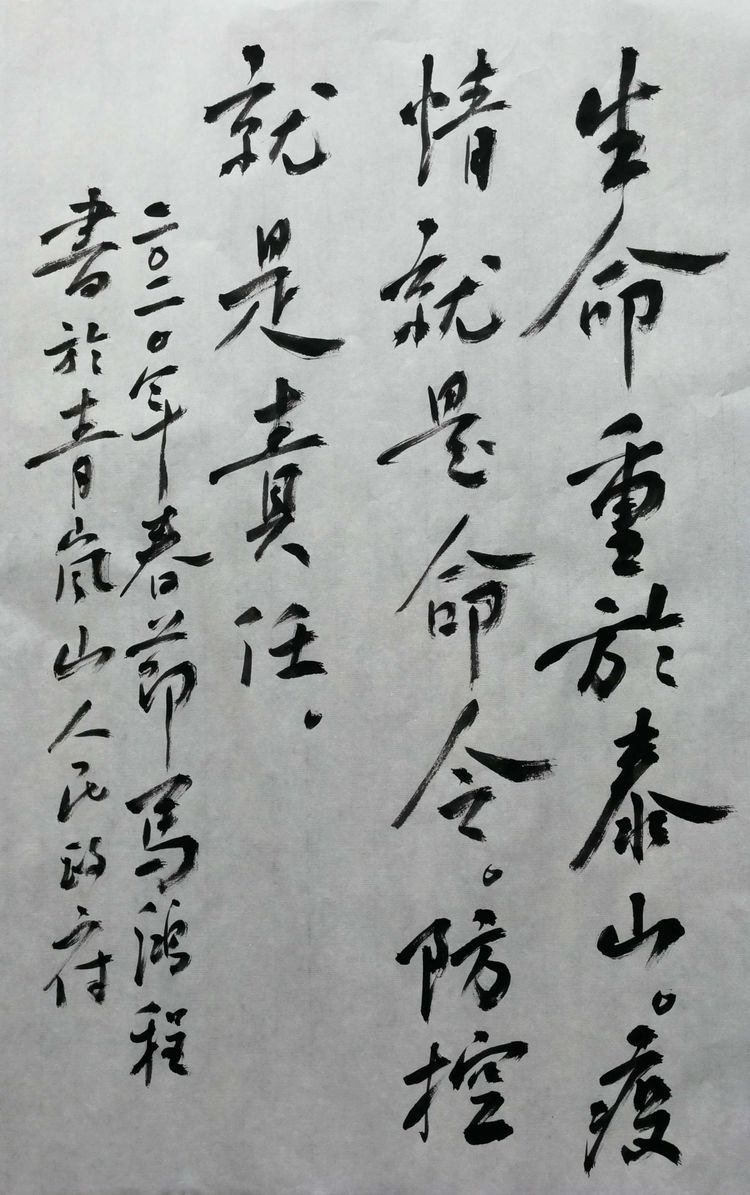 生命重於泰山。疫
情就是命令。防控
就是責任。
二〇二〇年春节馬鸿程
書於青嵐山人民政府